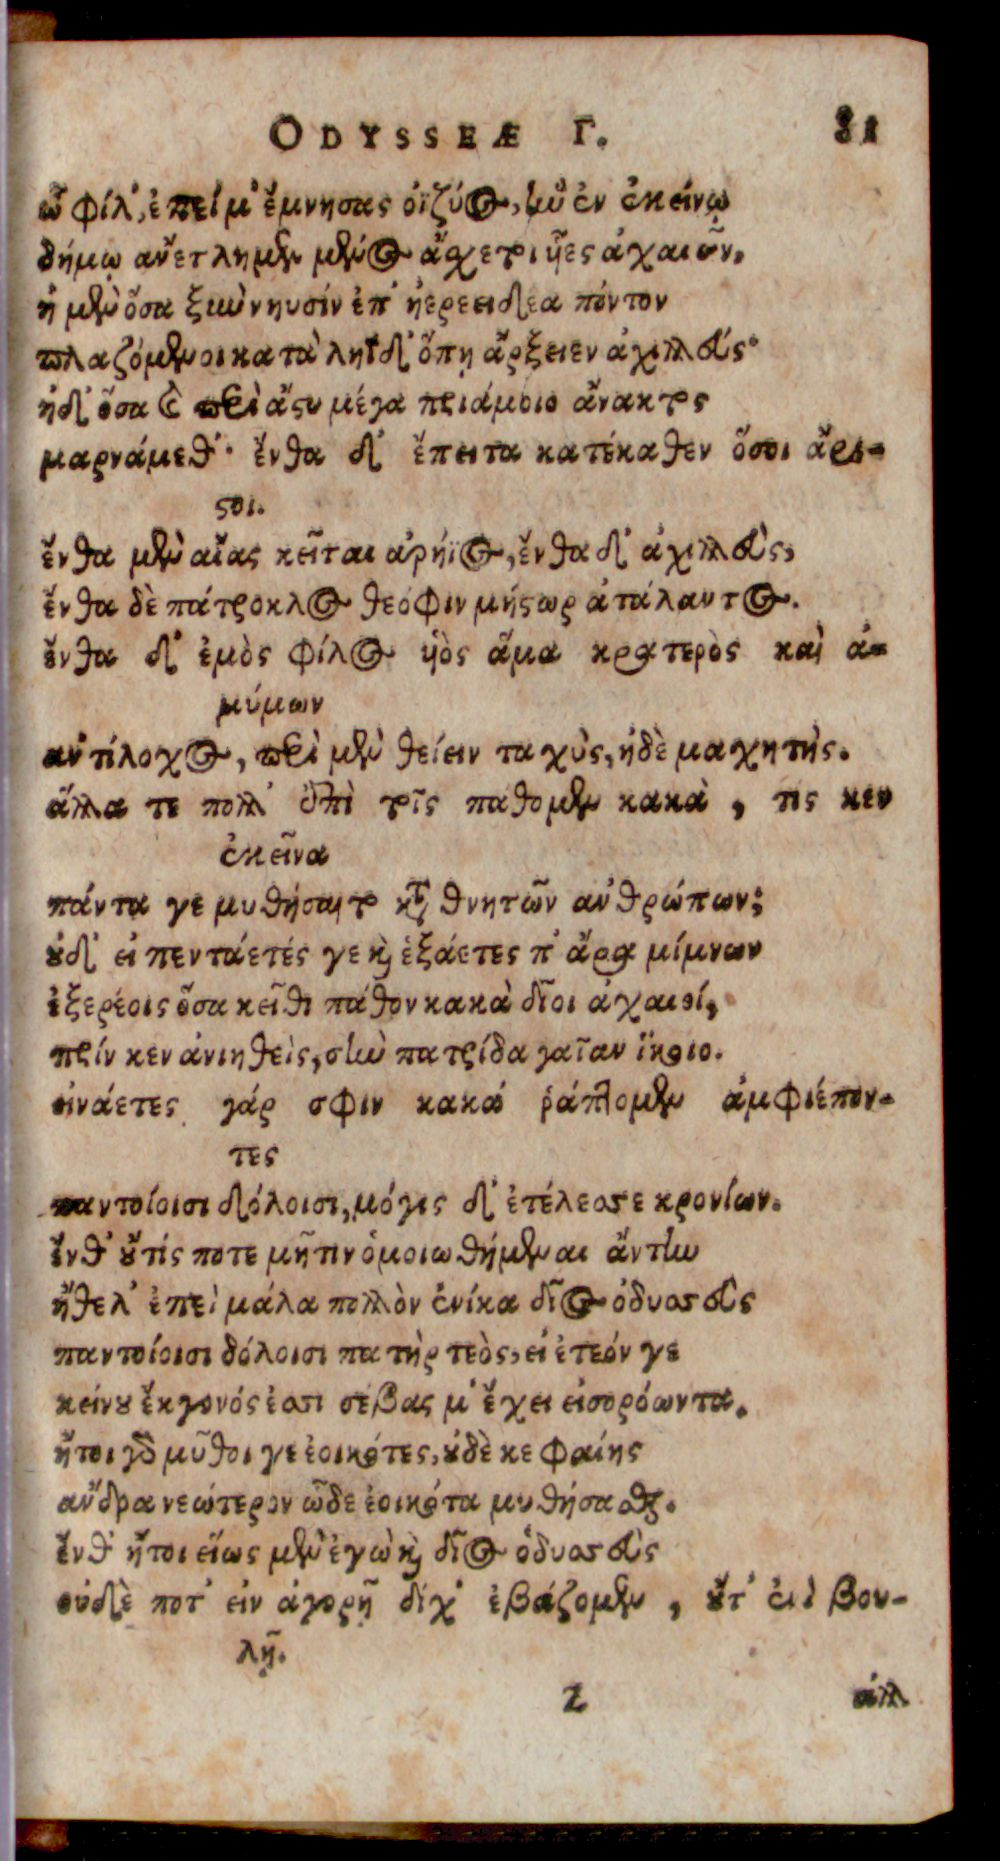 ODYSSEÆ Γ. 81
ὦ φίλ', ἐπεί μ' ἔμνησας ὀϊζύος, ἣν ἐν ἐκείνῳ
δήμῳ ἀνέτλημεν μένος ἄσχετοι ἧες ἀχαιῶν.
ἠ μὲν ὅσα ξὺν νηυσὶν ἐπ' ἠεροειδέα πόντον
πλαζόμενοι κατὰ ληΐδ' ὅπῃ ἄρξειεν ἀχιλλεύς·
ἠδ' ὅσα καὶ περὶ ἄστυ μέγα πριάμοιο ἄνακτος
μαρνάμεθ'· ἔνθα δ' ἔπειτα κατέκαθεν ὅσοι ἄρι-
στοι.
ἔνθα μὲν αἴας κεῖται ἀρήϊος, ἔνθα δ' ἀχιλλεὺς,
ἔνθα δὲ πάτροκλος θεόφιν μήστωρ ἀτάλαντος.
ἔνθα δ' ἐμὸς φίλος ὑὸς ἅμα κρατερὸς καὶ ἀ-
μύμων
ἀντίλοχος, περὶ μὲν θείειν ταχὺς, ἠδὲ μαχητής.
ἄλλα τε πολλ' ἐπὶ τοῖς πάθομεν κακὰ, τίς κεν
ἐκεῖνα
πάντα γε μυθήσαιτο καταθνητῶν ἀνθρώπων;
οὐδ' εἰ πεντάετές γε καὶ ἑξάετες π' ἄρα μίμνων
ἐξερέοις ὅσα κεῖθι πάθον κακὰ δῖοι ἀχαιοί,
πρίν κεν ἀνιηθεὶς, σὴν πατρίδα γαῖαν ἵκοιο.
εἰνάετες γάρ σφιν κακὰ ῥάπτομεν ἀμφιέπον-
τες
παντοίοισι δόλοισι, μόγις δ' ἐτέλεσσε κρονίων.
ἔνθ' οὔτίς ποτε μῆτιν ὁμοιωθήμεναι ἄντην
ἤθελ' ἐπεὶ μάλα πολλὸν ἐνίκα δῖος ὀδυσσεὺς
παντοίοισι δόλοισι πατὴρ τεὸς, εἰ ἐτεόν γε
κείνου ἔκγονός ἐσσι σέβας μ' ἔχει εἰσορόωντα.
ἤτοι γὰρ μῦθοι γε ἐοικότες, οὐδὲ κε φαίης
ἄνδρα νεώτερον ὧδε ἐοικότα μυθήσασθαι.
ἔνθ' ἤτοι εἵως μὲν ἐγὼ καὶ δῖος ὀδυσσεὺς
οὐδὲ ποτ' εἰν ἀγορῇ δίχ' ἐβάζομεν, οὔτ' ἐνὶ βου-
λῇ.
Z ἀλλ